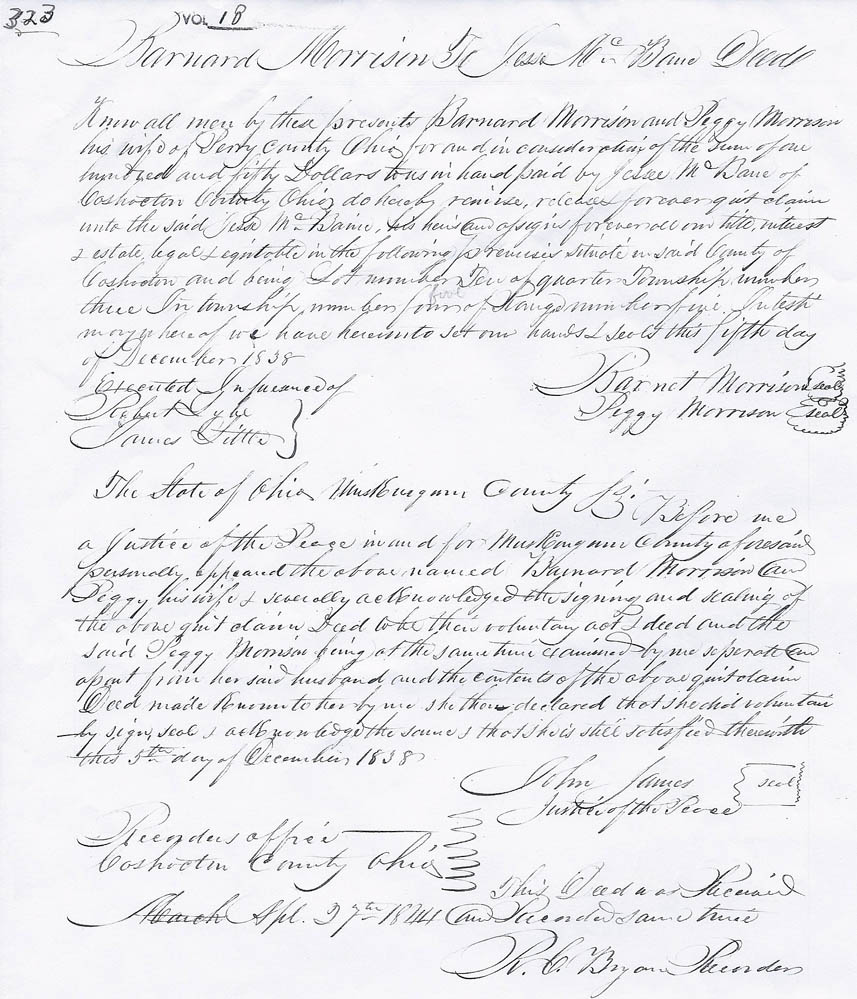 323 VOL 18
Barnard Morrison To Jesse McBane Deed
Know all men by these presents Barnard Morrison and Peggy Morrison
his wife of Perry County Ohio for and in consideration of the Sum of one
hundred and fifty Dollars to us in hand paid by Jesse McBane of
Coshocton County Ohio do hereby remise, release & forever quit claim
unto the said Jesse McBane, his heirs and assigns forever all our title, interest
& estate, legal & equitable in the following premises situate in said County of
Coshocton and being Lot number of quarter Township number
three In township, number four five of Range number five. In testi
mony whereof we have hereunto set our hands & seals this fifth day
of December 1838
Executed In presence of
Robert
James
Barnet Morrison seal
Peggy Morrison seal
The State of Ohio Muskingum County Before me
a Justice of the Peace in and for Muskingum County aforesaid
personally appeared the above named Barnard Morrison and
Peggy his wife & severally acknowledged the signing and sealing of
the above quit claim Deed to be their voluntary act & deed and the
said Peggy Morrison being at the same time examined by me seperate and
apart from her said husband and the contents of the above quit claim
Deed made known to her by me she then declared that she did voluntari
ly sign, seal & acknowledge the same & that she is still satisfied therewith
this 5th day of December 1838
John James seal
Justice of the Peace
Recorders office
Coshocton County Ohio
This Deed was Received
March Apl. 27th 1841 and Recorded same time
R. C. Bryan Recorder